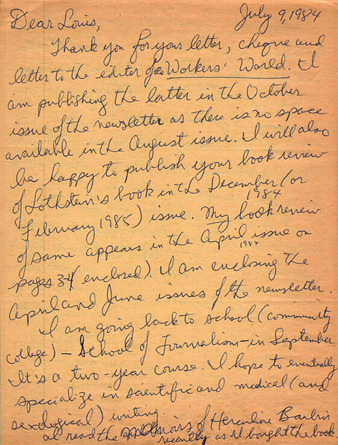 July 9, 1984
Dear Louis,
Thank you for your letter, cheque and
letter to the editor of Workers' World. I
am publishing the latter in the October
issue of the newsletter as there is no space
available in the August issue. I will also
be happy to publish your book review
of Lothstein's book in the December (or
1984
February 1985) issue. My book review
of same appears in the April issue on
1984
pages 3-4 enclosed). I am enclosing the
April and June issues of the newsletter.
I am going back to school (community
college) – School of Journalism – in September
It's a two-year course. I hope to eventually
specialize in scientific and medical (and
sexological) writing.
I read the memoirs of Herculine Barbin
recently as I bought the book